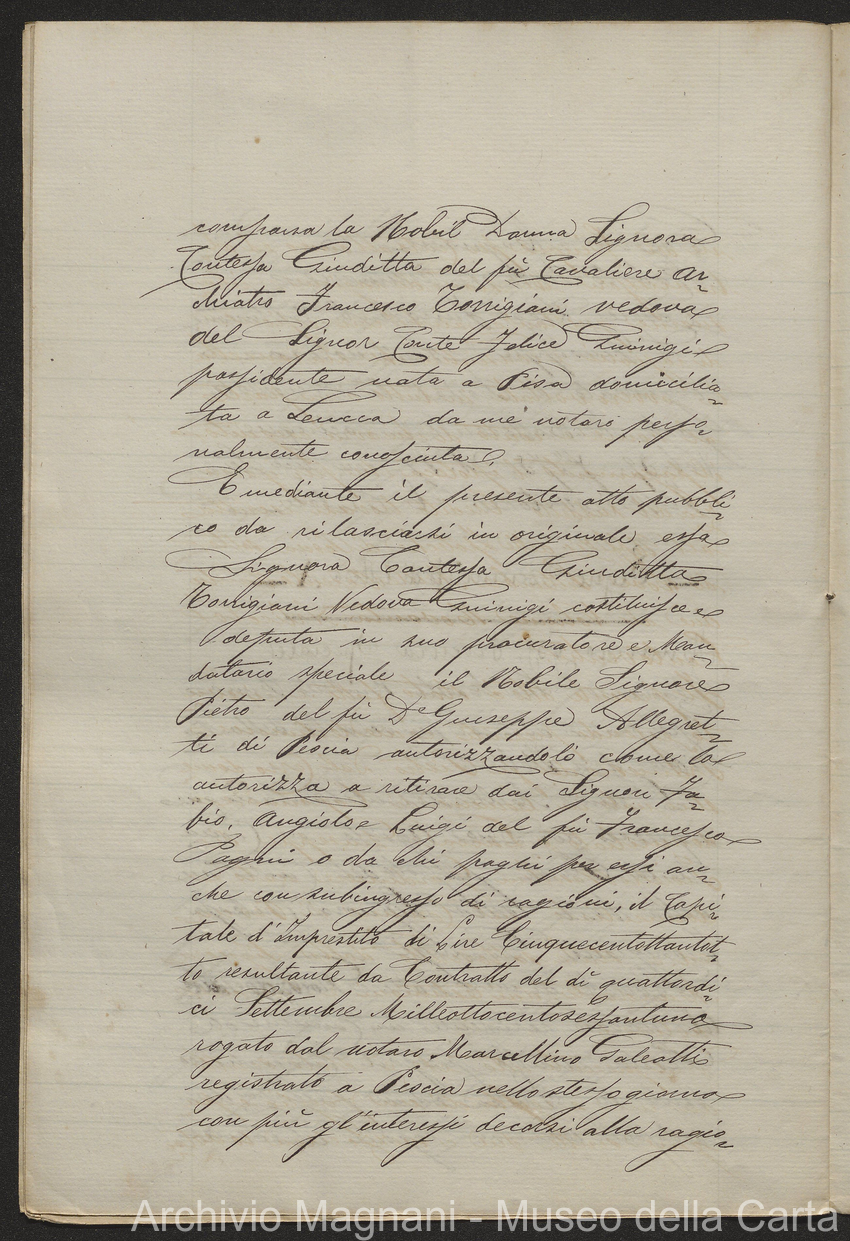 comparsa la Nobil Donna Signora
Contessa Giuditta del fù Cavaliere Ar-
chiatro Francesco Torrigiani vedova
del Signor Conte Felice Guinigi
possidente nata a Pisa domicilia-
ta a Lucca da me notaro perso-
nalmente conosciuta.
E mediante il presente atto pubbli-
co da rilasciarsi in originale essa
Signora Contessa Giuditta
Torrigiani Vedova Guinigi costituisce e
deputa in suo procuratore e Man-
datario speciale il Nobile Signore
Pietro del fù Dr Giuseppe Allegret-
ti di Pescia autorizzandolo come lo
autorizza a ritirare dai Signori Fa-
bio, Angiolo e Luigi del fù Francesco
Pagni o da chi paghi per essi an-
che con subingresso di ragioni, il Capi-
tale d'Imprestito di Lire Cinquecentottantot-
to resultante da Contratto del dì quattordi-
ci Settembre Milleottocentosessantuno
rogato dal notaro Marcellino Galeotti
registrato a Pescia nello stesso giorno
con più gl'interessi decorsi alla ragio-
Archivio Magnani - Museo della Carta